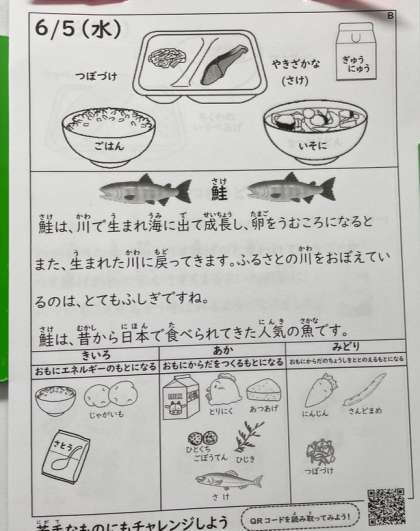 B
6/5(水)
つぼづけ
やきざかな
(さけ)
ぎゅう
にゅう
ごはん
いそに
鮭
さけ
鮭は、川で生まれ海に出て成長し、卵をうむころになると
また、生まれた川に戻ってきます。ふるさとの川をおぼえてい
るのは、とてもふしぎですね。
鮭は、昔から日本で食べられてきた人気の魚です。
きいろ
あか
みどり
おもにエネルギーのもとになる
おもにからだをつくるもとになる
おもにからだのちょうしをととのえるもとになる
じゃがいも
とりにく
あつあげ
にんじん
さんどまめ
ひとくち
ごぼうてん
ひじき
つぼづけ
さとう
さけ
苦手なものにもチャレンジしよう
QRコードを読み取ってみよう!